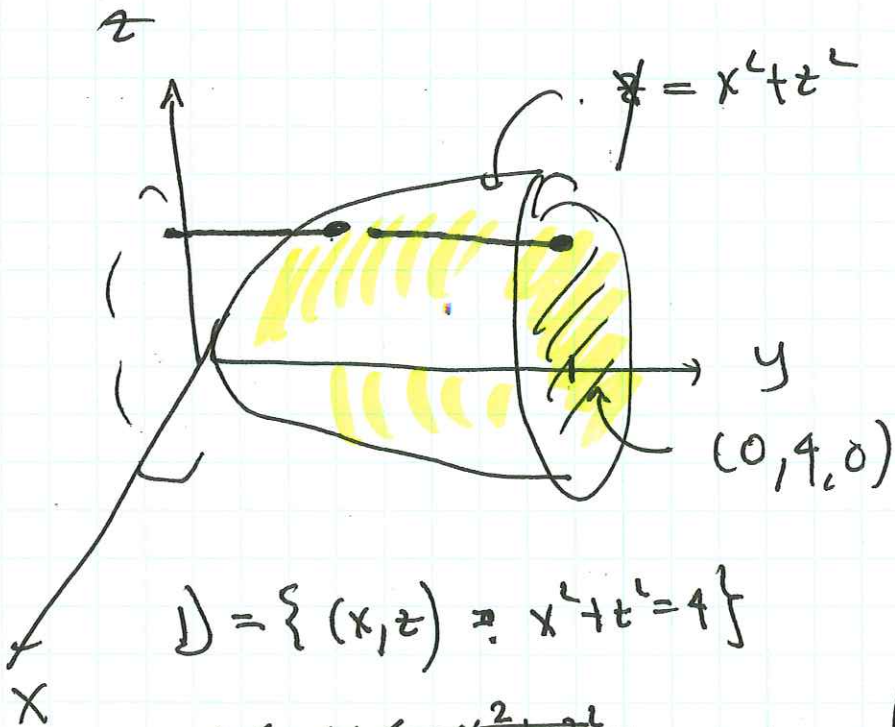 z
y = x² + z²
y
(0,4,0)
D = { (x,z) : x² + z² = 4 }
x
x² + z²